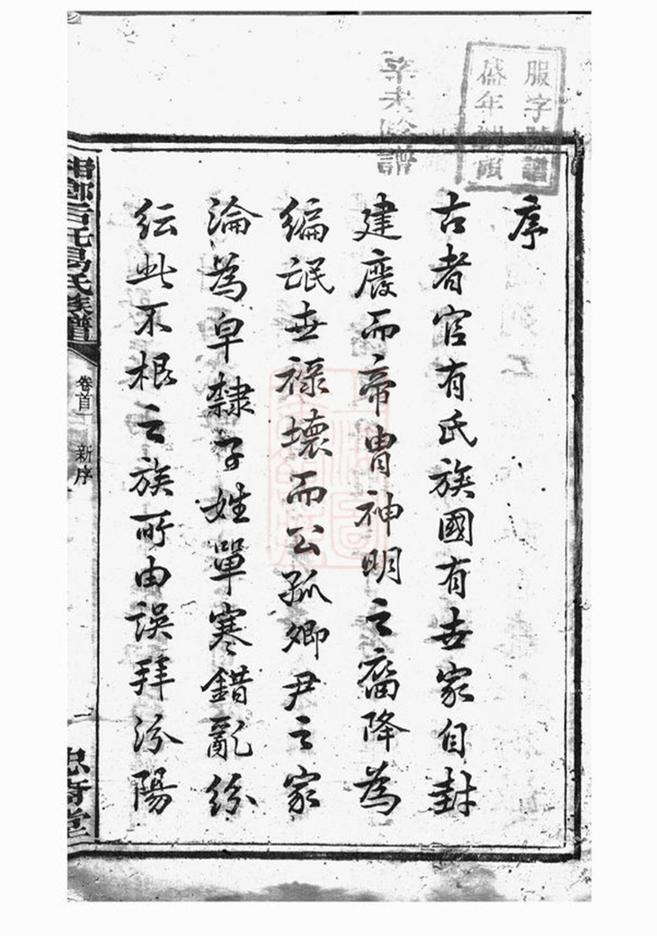 辛未修譜
序
古者官有氏族國有世家自封
建廢而帝冑神明之裔降為
編氓世祿壞而公孤卿尹之家
淪為皁隸子姓單寒錯亂紛
紜此不根之族所由誤拜汾陽
湘鄉易氏族譜
卷首
新序
一